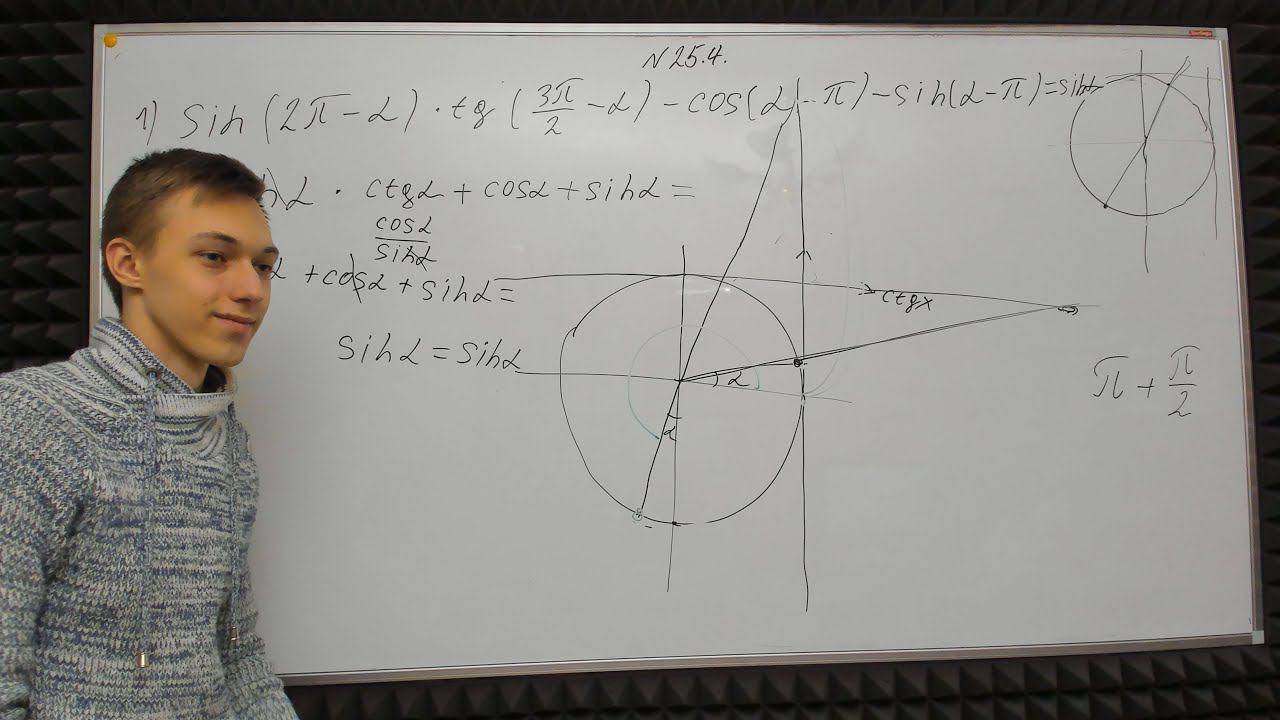 N 25.4.
1) sin (2π - α) · tg (3π/2 - α) - cos(α - π) - sin(α - π) = sinα
α · ctgα + cosα + sinα =
cosα/sinα
α + cosα + sinα =
sinα = sinα
ctgx
α
α
π + π/2